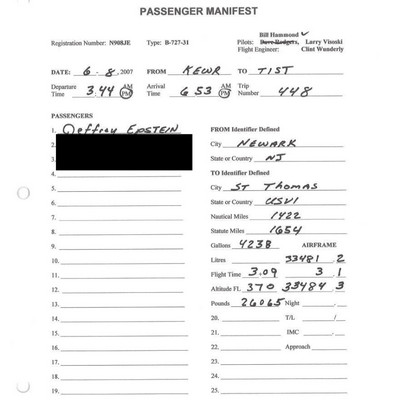 PASSENGER MANIFEST
Bill Hammond ✓
Registration Number: N908JE Type: B-727-31 Pilots: Dave Rodgers, Larry Visoski
Flight Engineer: Clint Wunderly
DATE: 6 - 8, 2007 FROM KEWR TO TIST
Departure Time 3:44 AM PM Arrival Time 6 53 AM PM Trip Number 448
PASSENGERS
1. Jeffrey Epstein FROM Identifier Defined
2. City NEWARK
3. State or Country NJ
4. TO Identifier Defined
5. City ST Thomas
6. State or Country USVI
7. Nautical Miles 1422
8. Statute Miles 1654
9. Gallons 4238 AIRFRAME
10. Litres 33481 . 2
11. Flight Time 3.09 3 . 1
12. Altitude FL 370 33484 . 3
13. Pounds 26065 Night
14. 20. T/L /
15. 21. IMC
16. 22. Approach
17. 23.
18. 24.
19. 25.